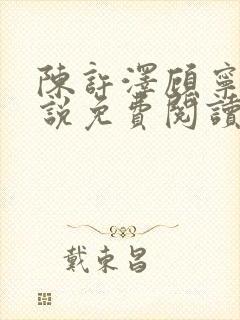 陳許澤顧寧
說免費閱讀
戴東昌